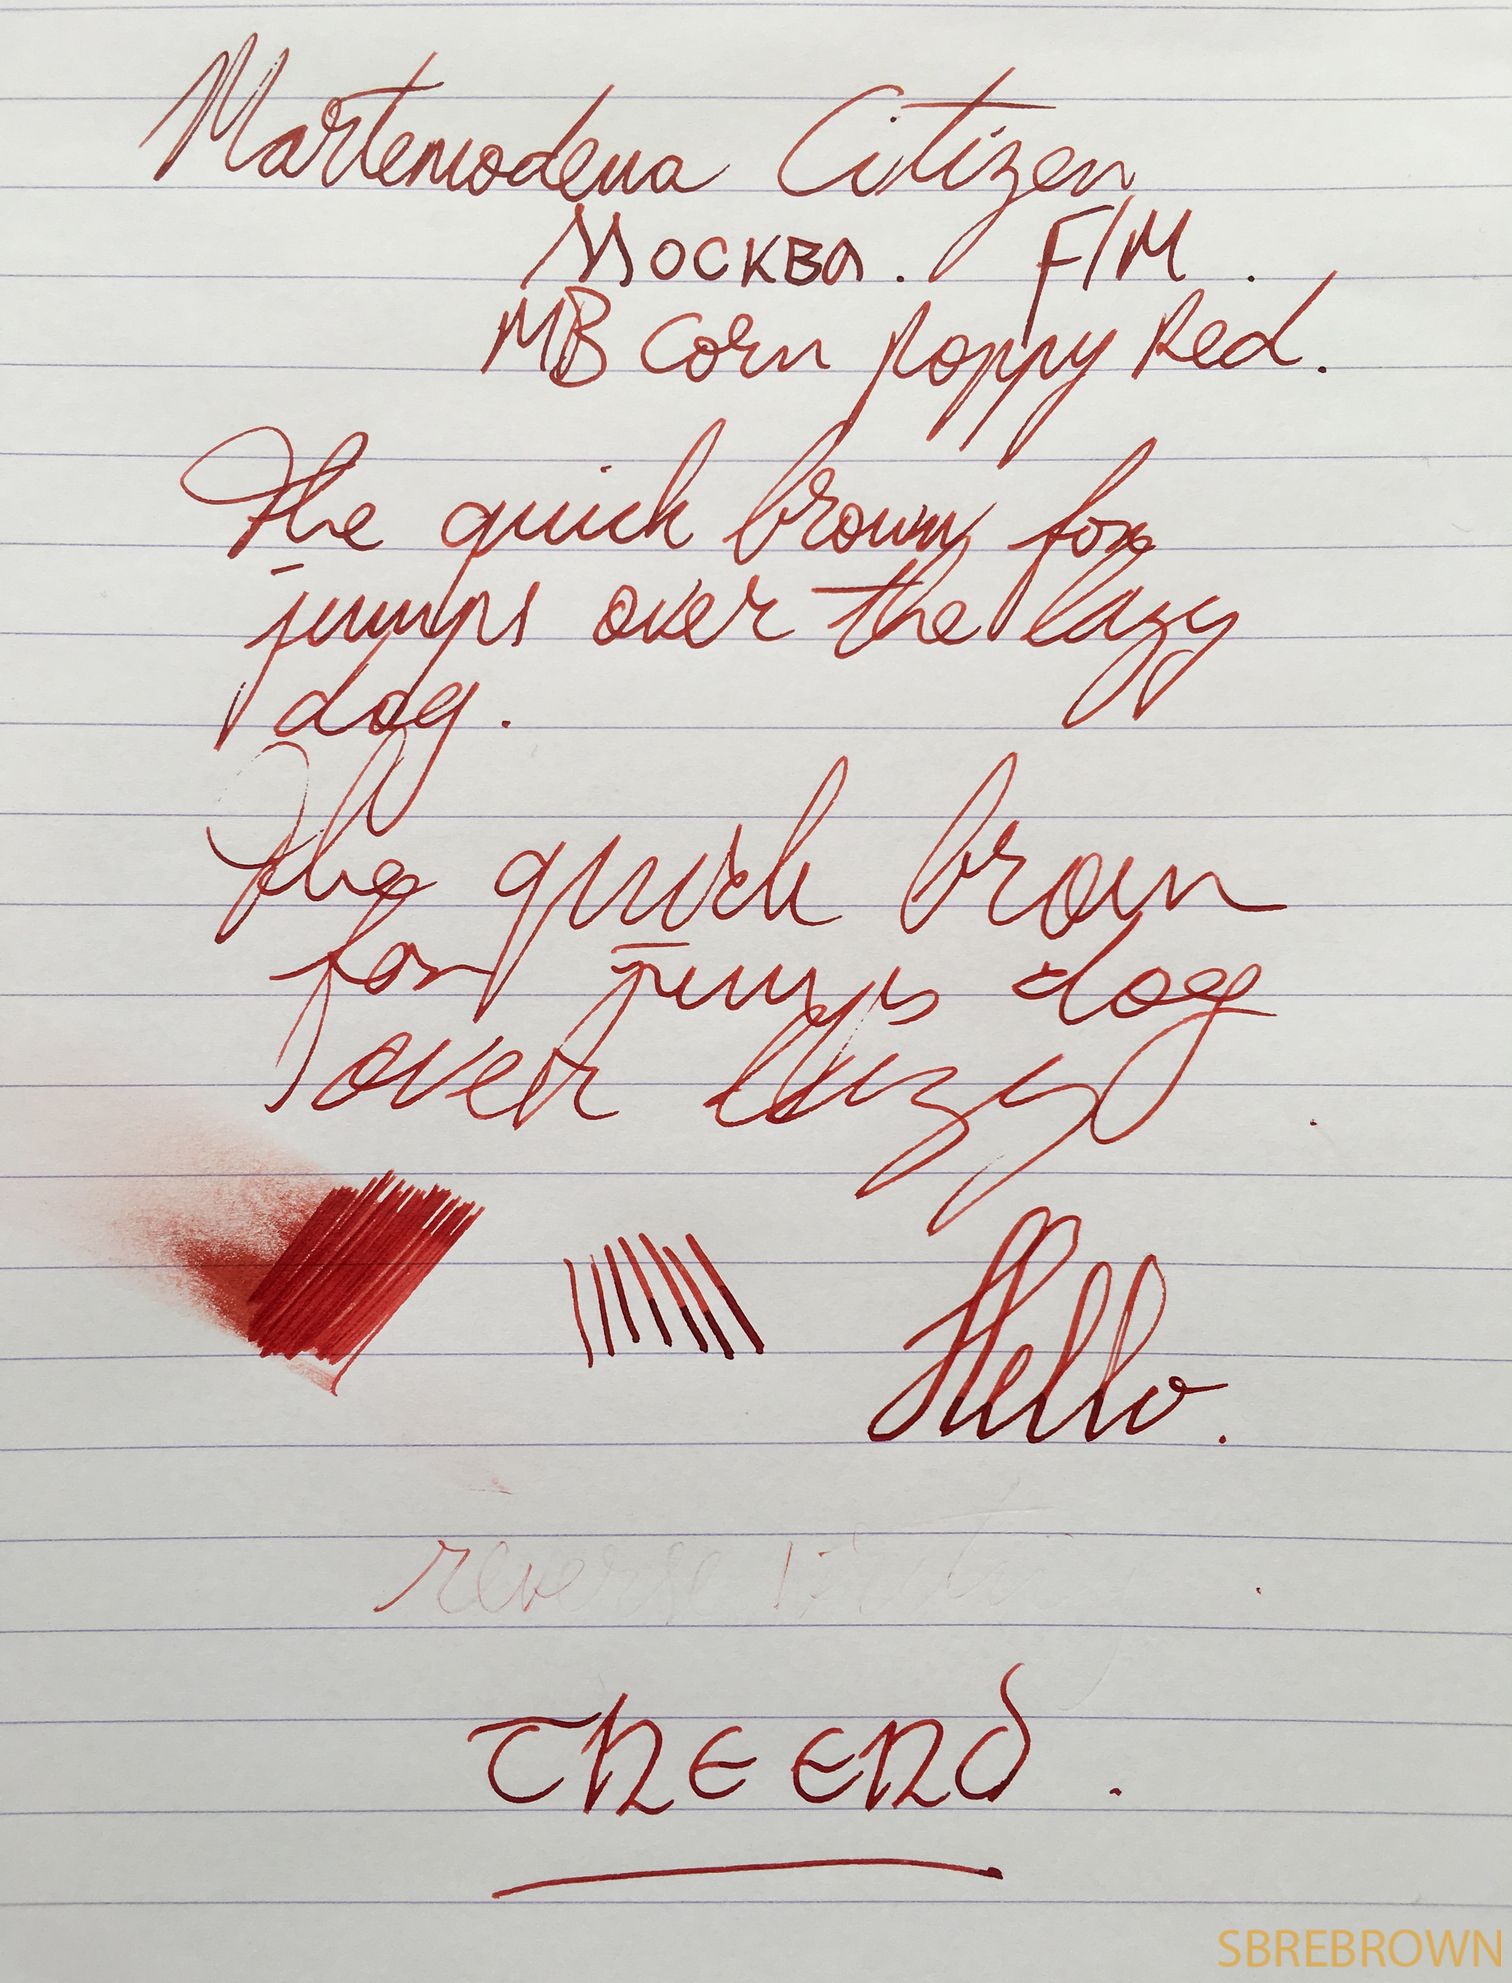 Martemodena Citizen
Москва. F/M.
MB Corn Poppy Red.
The quick brown fox
jumps over the lazy
dog.
The quick brown
fox jumps dog
over lazy.
Hello.
reverse writing.
THE END.
SBREBROWN